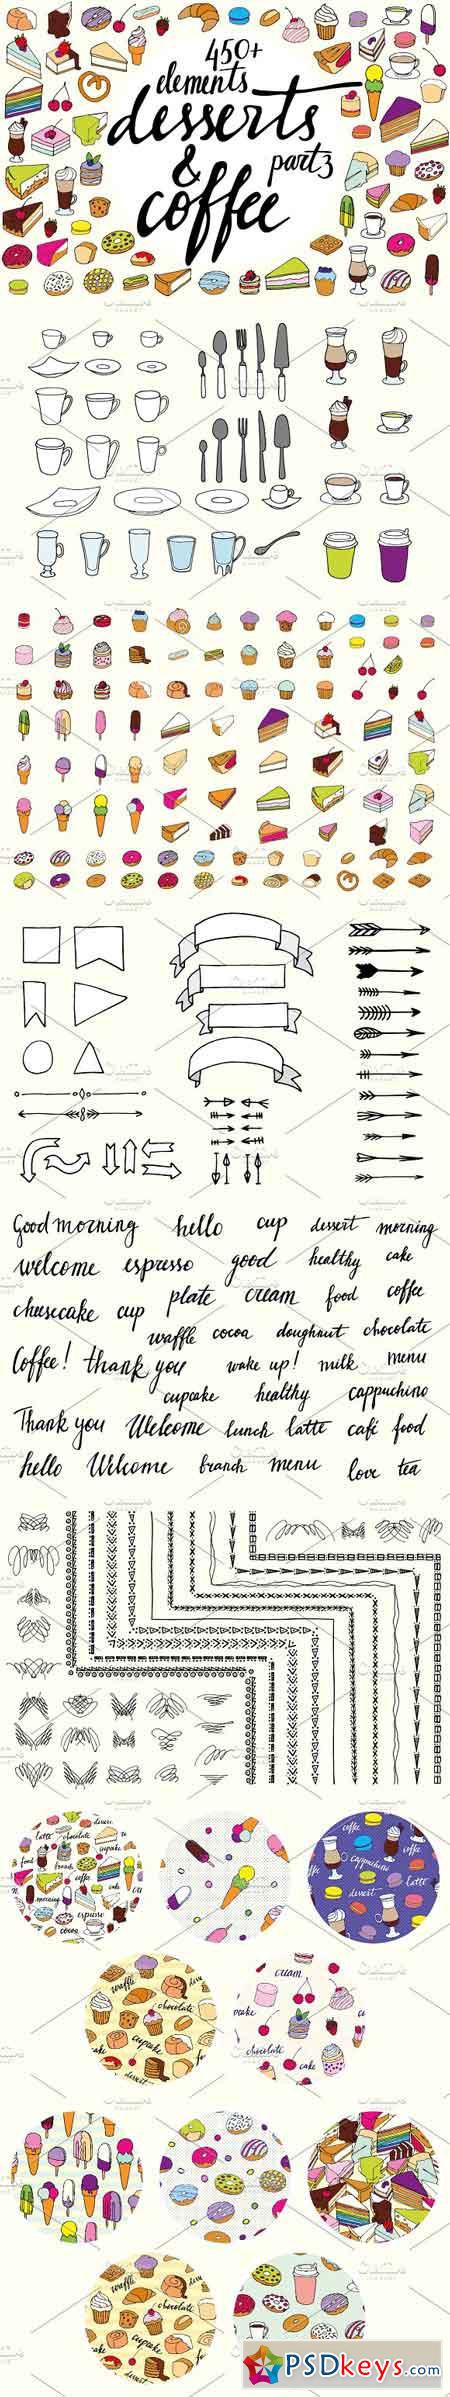 450+
elements
desserts
& part 3
coffee
Good morning hello cup dessert morning
welcome espresso good healthy cake
cheesecake cup plate cream food coffee
waffle cocoa doughnut chocolate
Coffee! thank you wake up! milk menu
cupcake healthy cappuchino
Thank you Welcome lunch latte café food
hello Welcome branch menu love tea
latte chocolate
cupcake
food branch coffee cake
morning
espresso
cocoa
coffee
cappuchino
latte
dessert
waffle
chocolate
cupcake
dessert
cream
chocolate
cake
waffle
chocolate
cupcake
dessert
PSDkeys.com